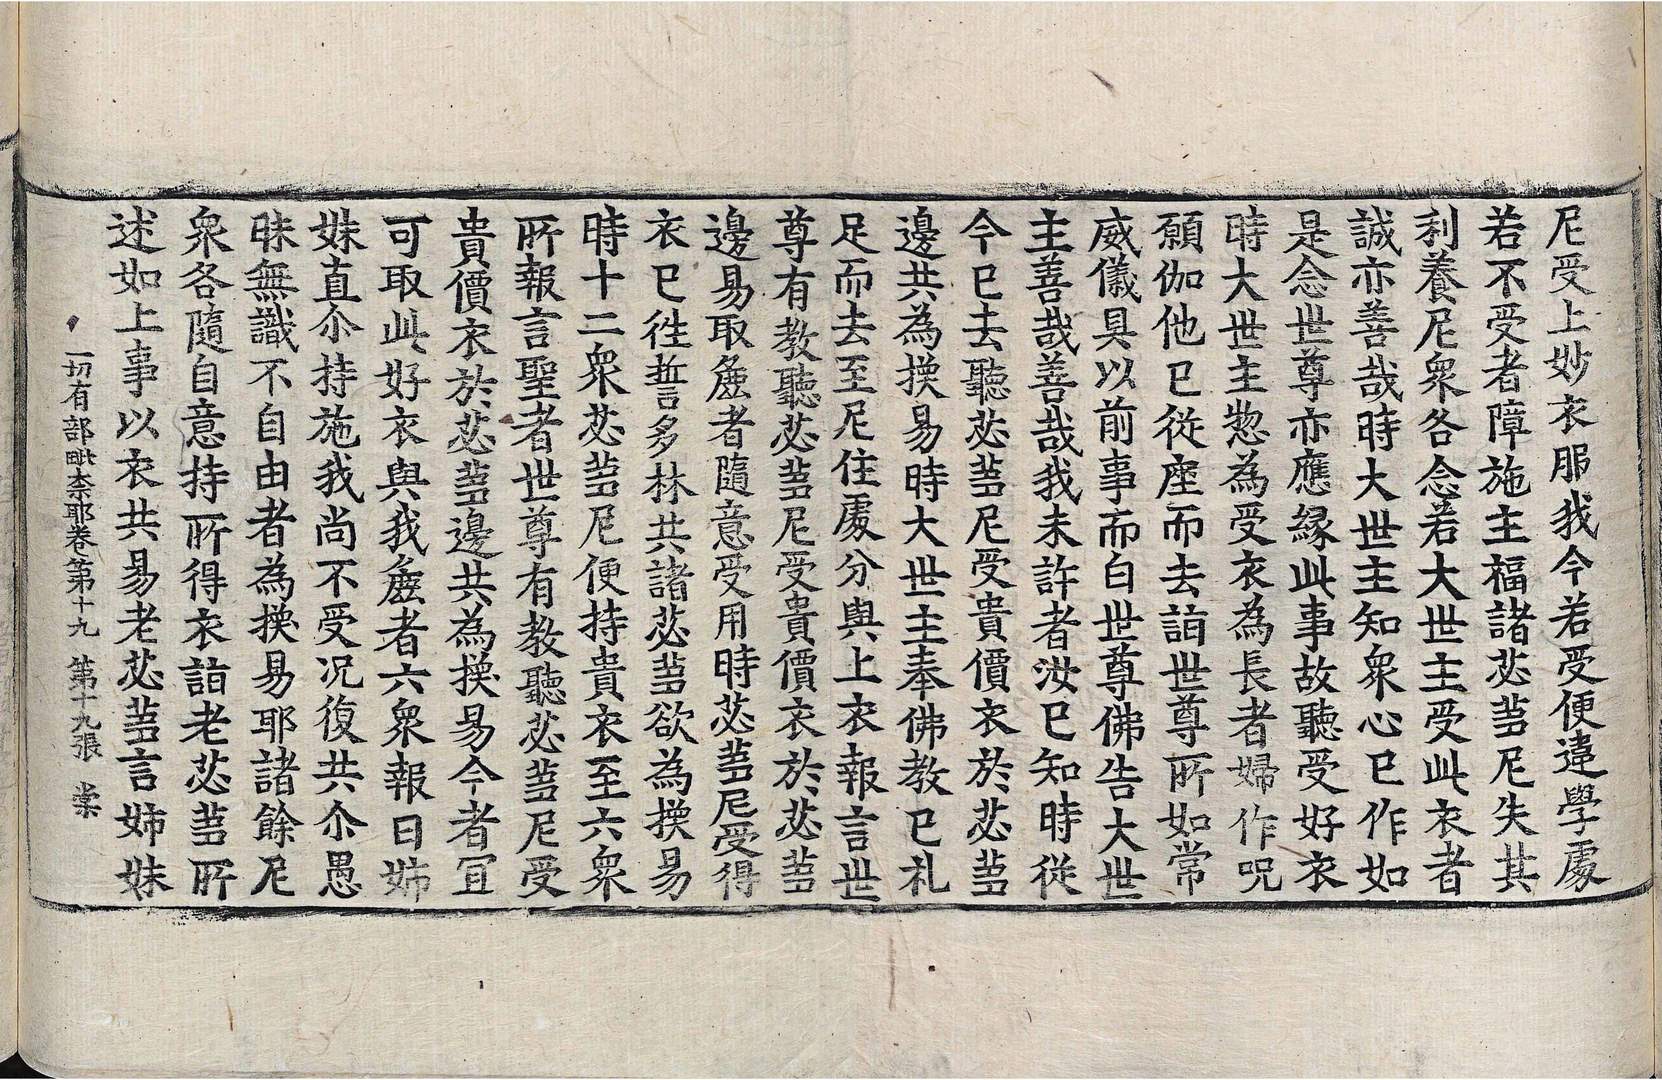 尼受上妙衣服我今若受便違學處
若不受者障施主福諸苾蒭尼失其
利養尼衆各念若大世主受此衣者
誠亦善哉時大世主知衆心已作如
是念世尊亦應緣此事故聽受好衣
時大世主愍為受衣為長者婦作呪
願伽他已從座而去詣世尊所如常
威儀具以前事而白世尊佛告大世
主善哉善哉我未許者汝已知時從
今已去聽苾蒭尼受貴價衣於苾蒭
邊共為換易時大世主奉佛教已礼
足而去至尼住處分與上衣報言世
尊有教聽苾蒭尼受貴價衣於苾蒭
邊易取麁者隨意受用時苾蒭尼受得
衣已徃誓多林共諸苾蒭欲為換易
時十二衆苾蒭尼便持貴衣至六衆
所報言聖者世尊有教聽苾蒭尼受
貴價衣於苾蒭邊共為換易今者冝
可取此好衣與我麁者六衆報曰姉
妹直尒持施我尚不受况復共尒愚
昧無識不自由者為換易耶諸餘尼
衆各隨自意持所得衣詣老苾蒭所
述如上事以衣共易老苾蒭言姉妹
一切有部毗柰耶卷第十九　第十九張　棠